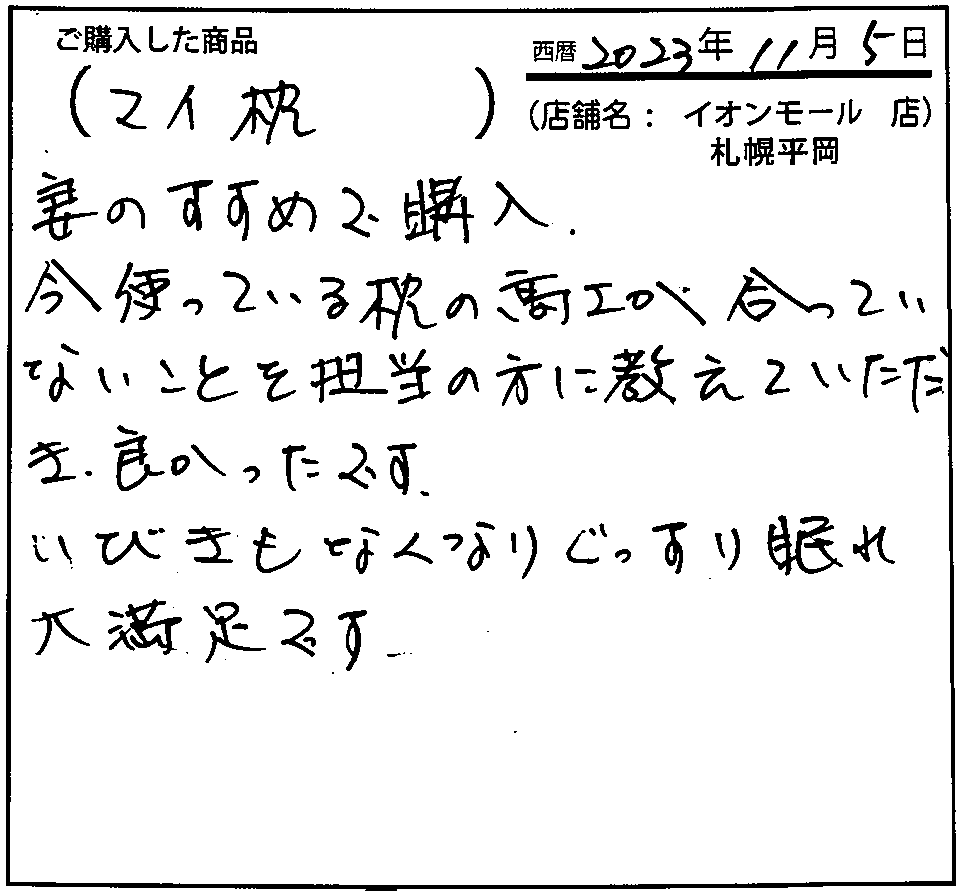 ご購入した商品
西暦 2023年 11月 5日
(マイ枕)
(店舗名： イオンモール 店)
札幌平岡
妻のすすめで購入.
今使っている枕の高工が合ってい
ないことを担当の方に教えていただ
き.良かったです.
いびきもなくなりぐっすり眠れ
大満足です